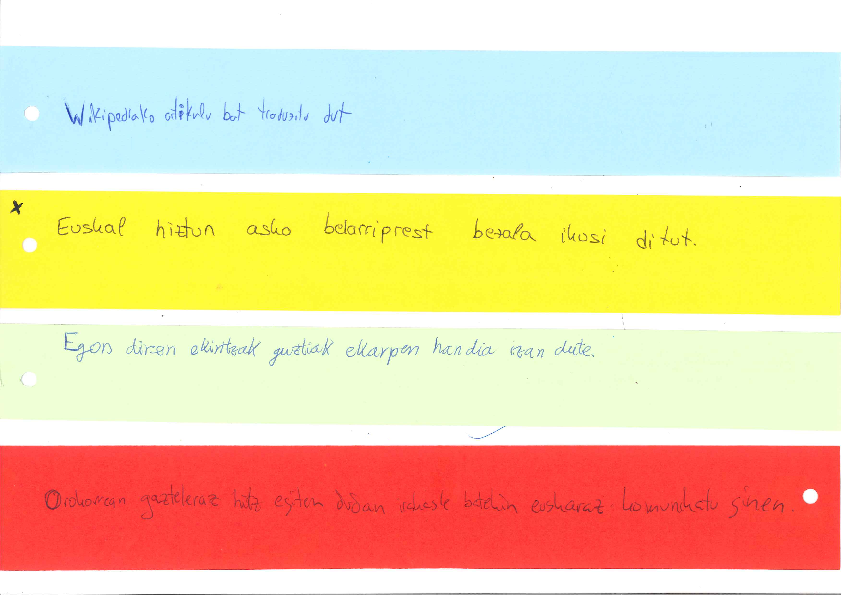 Wikipediako artikulu bat traduzitu dut
x
Euskal hiztun asko belarriprest bezala ikusi ditut.
Egon diren ekintzak guztiak ekarpen handia izan dute.
Orokorrean gazteleraz hitz egiten dudan irakasle batekin euskaraz komunikatu ginen.